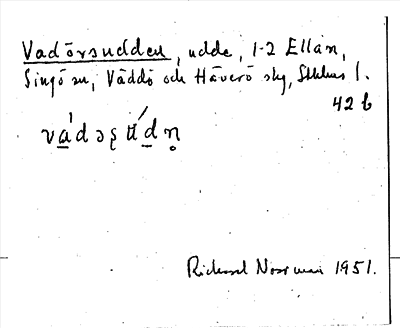 Vadörsudden, udde, 1-2 Ellan,
Singö sn, Väddö och Häverö skg, Sthlms l.
42 b
va̲'dəʂu̲'dn̥
Richard Norrman 1951.